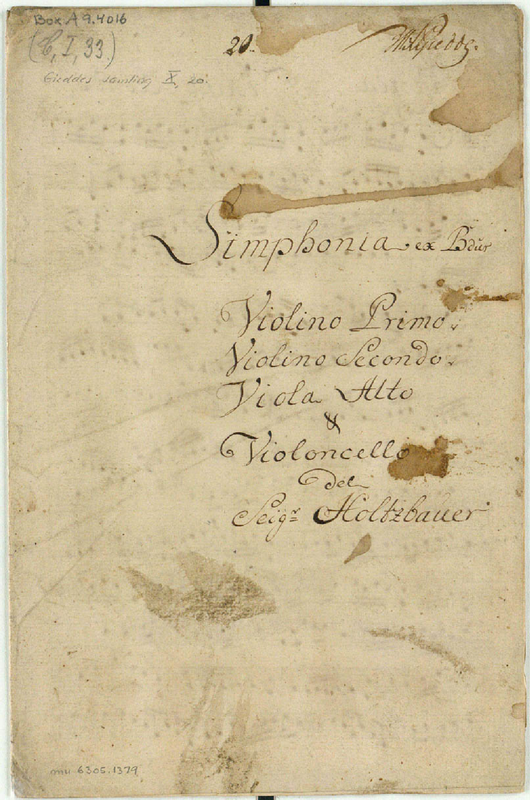 Box A 9.4016
(C, I, 33.)
20.
WHRGiedde.
Gieddes samling X, 20.
Simphonia ex B dur
Violino Primo.
Violino Secondo.
Viola Alto
&
Violoncello
del
Seigr Holtzbauer
mu 6305.1379